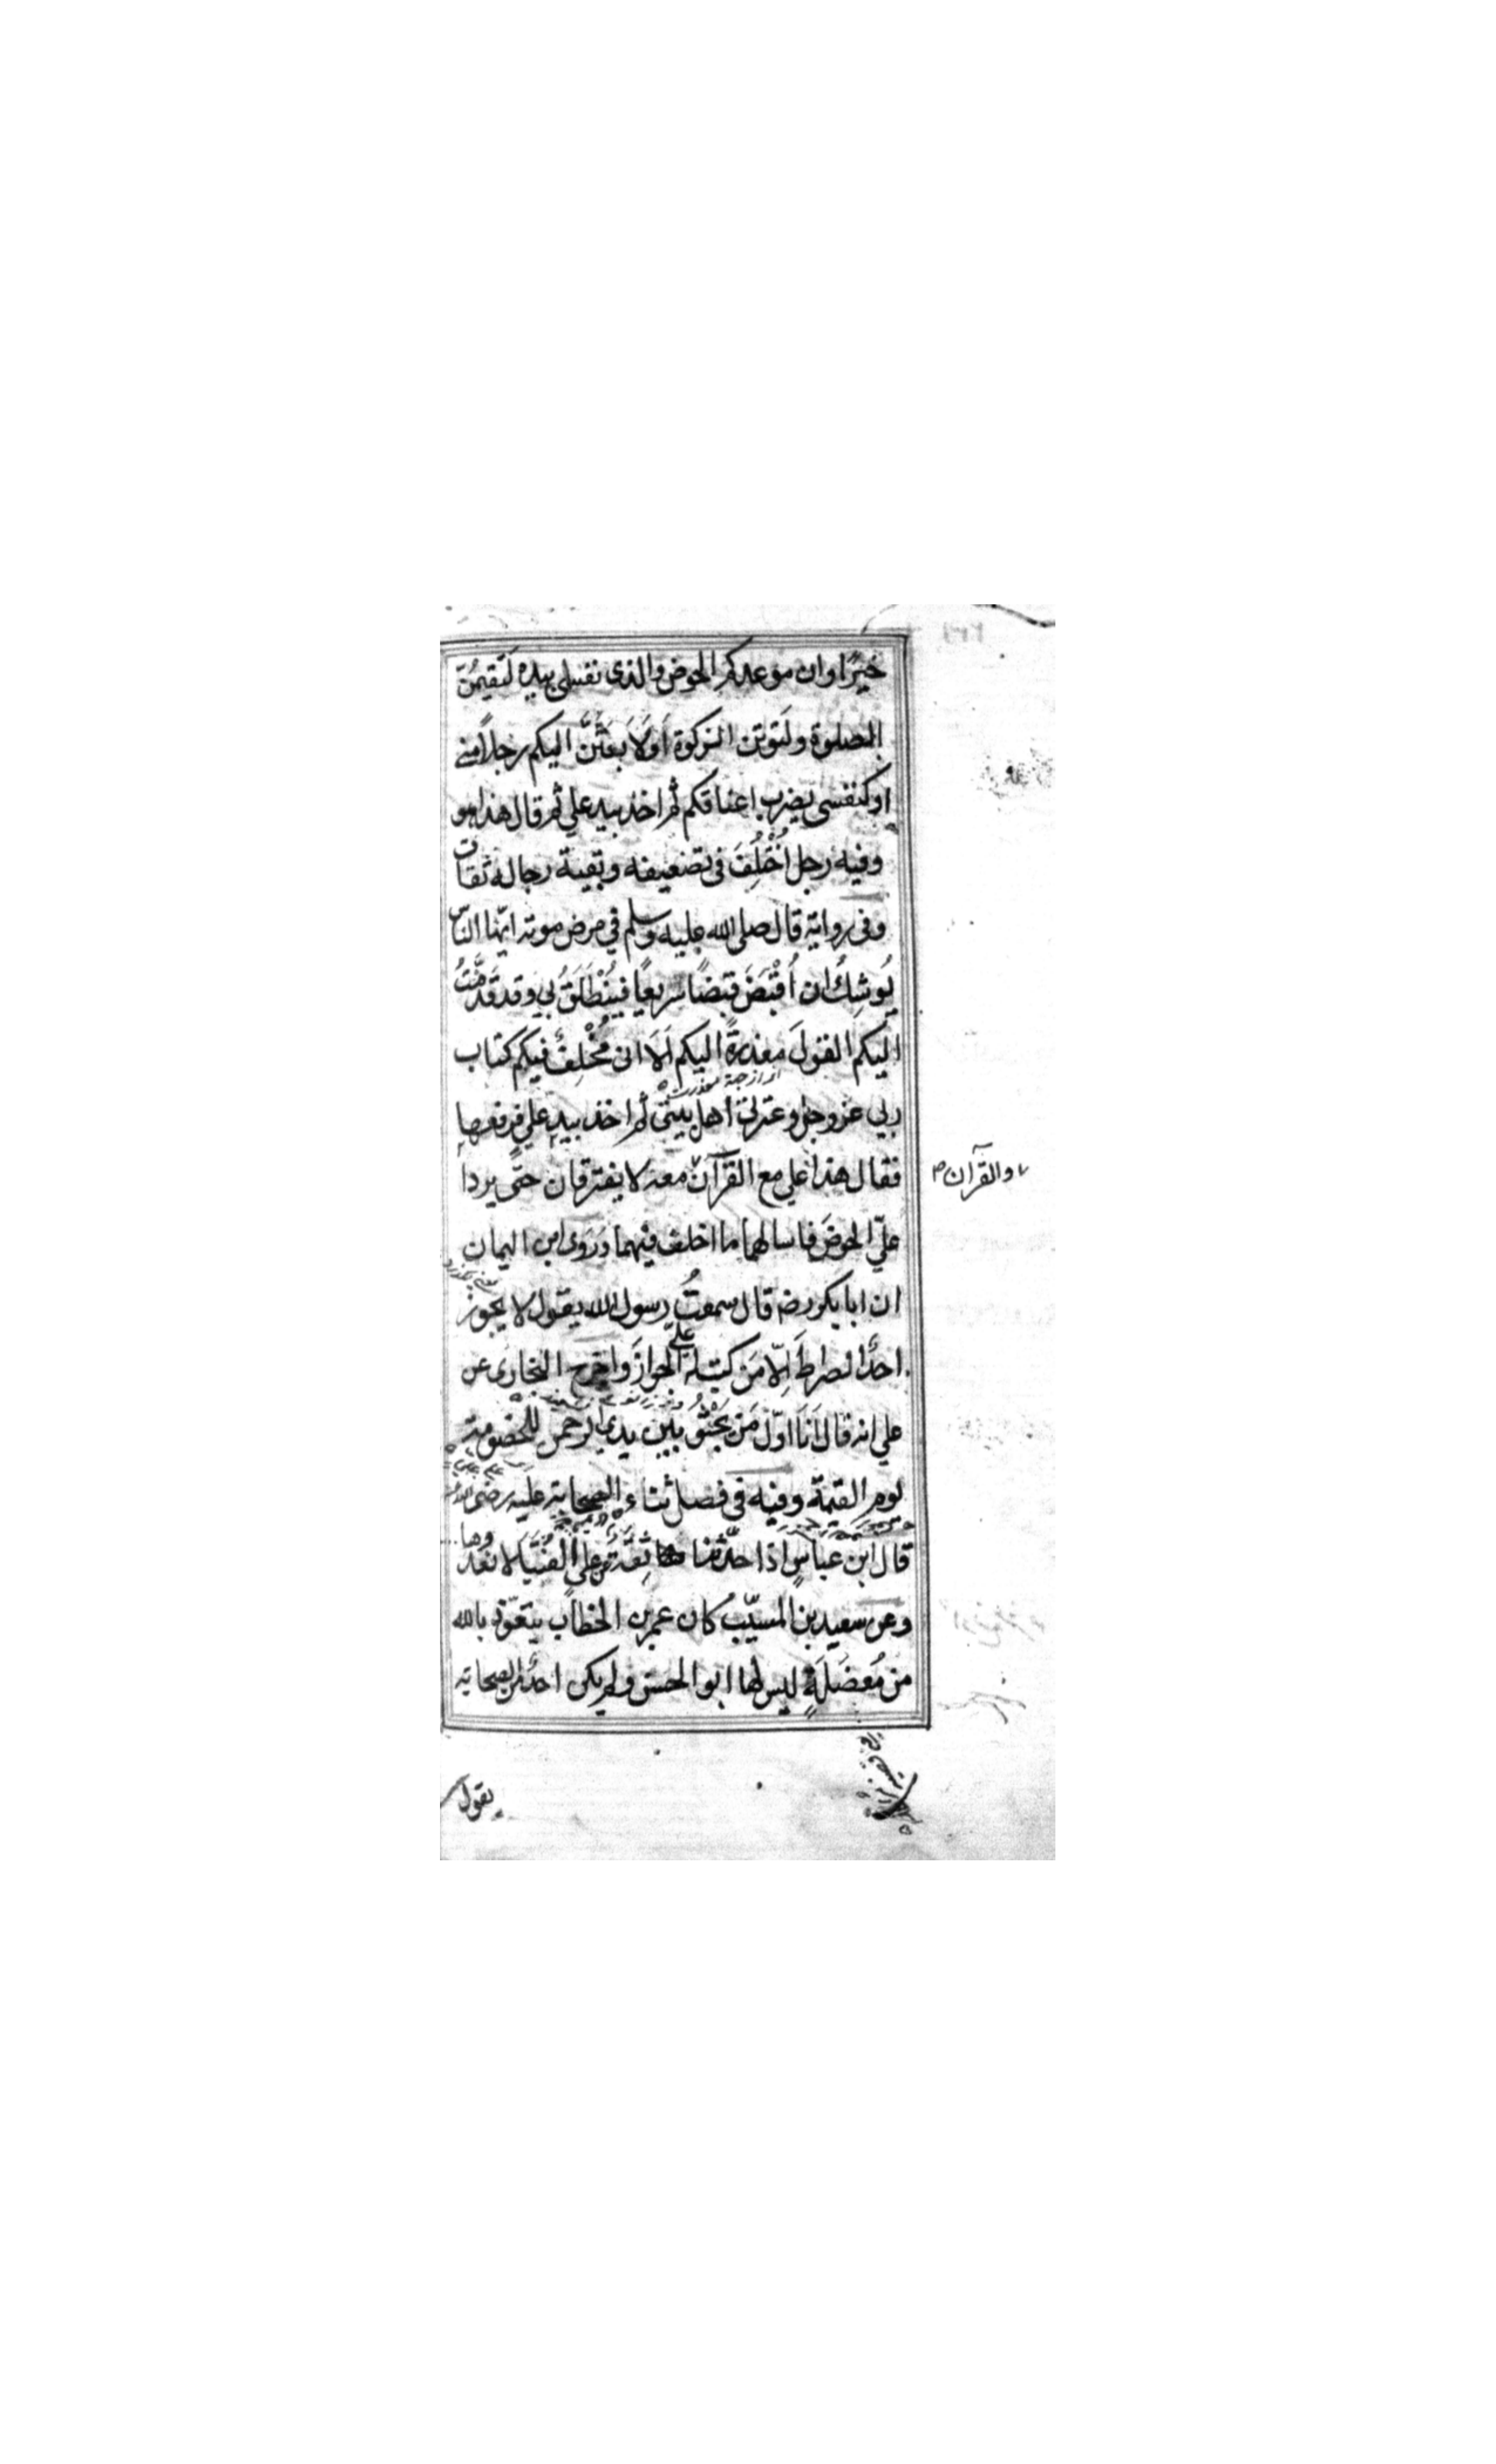 خيرًا وان موعدكم الحوض والذي نفسي بيده لَتقيمُنّ
الصلوة ولَتوتن الزكوة اَو لَاَبعَثَنَّ اليكم رجلاً مني
اوكنفسي يضرب اعناقكم ثم اخذ بيد علي ثم قال هذا هو
وفيه رجل اُخْتُلِفَ في تضعيفه وبقية رجاله ثقات
وفي رواية قال صلى الله عليه وسلم في مرض موته ايّها الناس
يُوشِكُ ان اُقْبَضَ قبضًا سريعًا فيُنْطَلَقُ بي وقد قَدَّمْتُ
اليكم القولَ معذرةً اليكم اَلَا اني مُخْلِفٌ فيكم كتاب
ربي عزوجل وعترتي اهل بيتي ثم اخذ بيد علي فرفعها
فقال هذا علي مع القرآن معه لا يفترقان حتّى يردا
والقرآن
عليّ الحوضَ فاسالهما ما اخلف فيهما وَرَوى ابن اليمان
ان ابا بكر رضه قال سمعتُ رسول الله يقول لا يجوز
احدٌ الصراطَ اِلّا مَن كتب له عليّ الجوازَ واخرج البخاري عن
علي انه قال اَنَا اوّل مَن يَجْثُو بين يدي الرحمن للخصومة
يوم القيمة وفيه في فصل ثناء الصحابة عليه رضي الله
قال ابن عباسٍ اذا حدّثنا ثِقَةٌ عن علي الفُتيَا لا نعدوها
وعن سعيد بن المسيّب كان عمر بن الخطاب يتعوّذ بالله
من مُعضَلَةٍ ليس لها ابو الحسن ولم يكن احدٌ من الصحابة
يقول